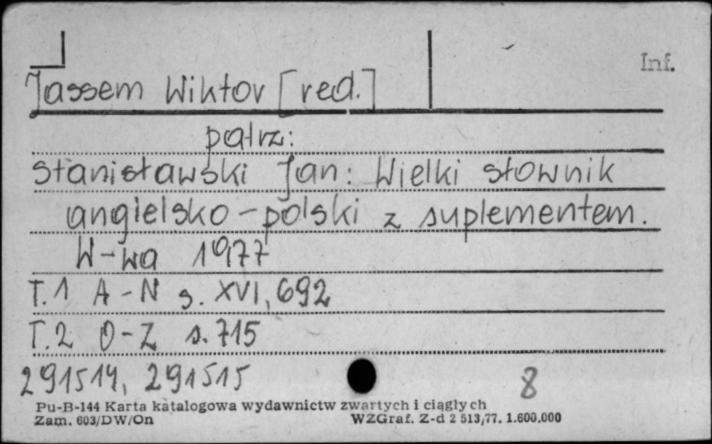 Inf.
Jassem Wiktor [red.]
patrz:
Stanisławski Jan: Wielki słownik
angielsko-polski z suplementem.
W-wa 1977
T.1 A-N s. XVI, 692
T.2 O-Z s. 715
291514, 291515 8
Pu-B-144 Karta katalogowa wydawnictw zwartych i ciągłych
Zam. 603/DW/On WZGraf. Z-d 2 513,77. 1.600.000